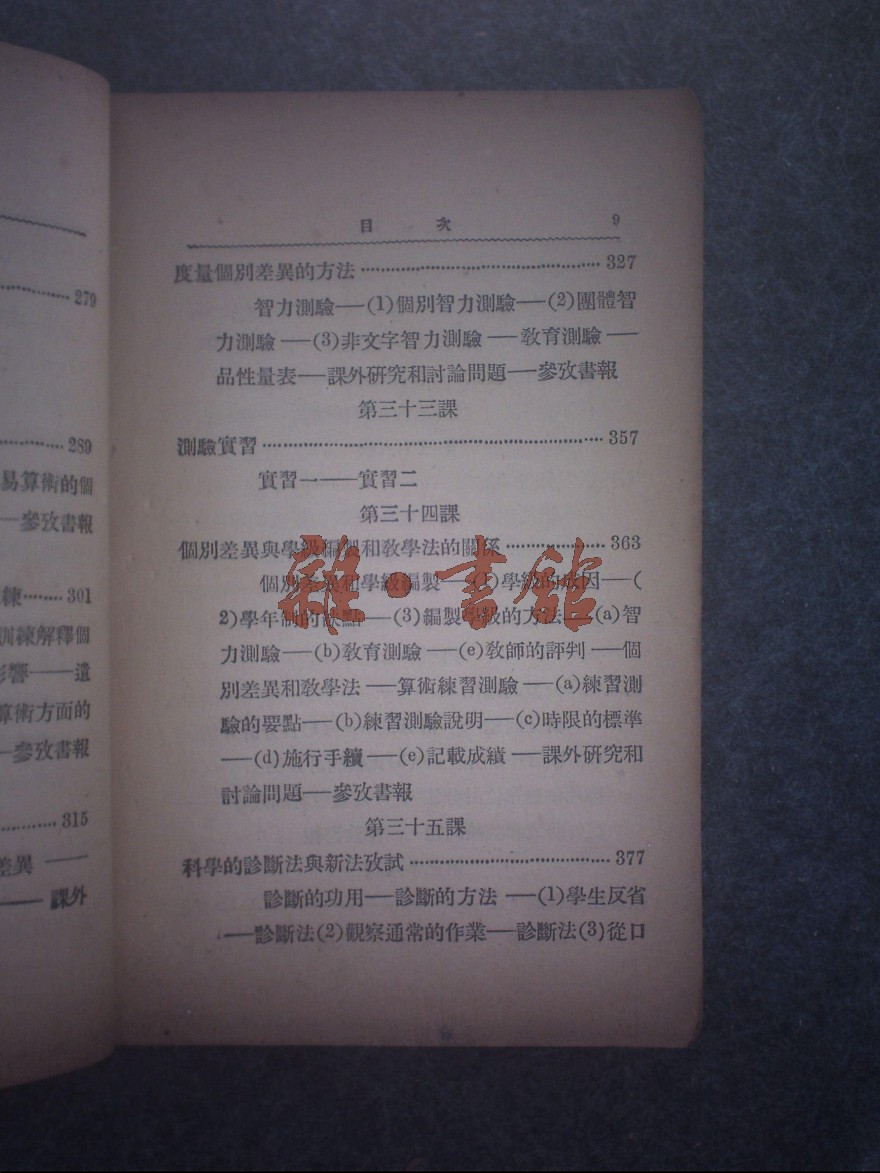 279
289
易算術的個
—參攷書報
練……301
訓練解釋個
影響——遺
算術方面的
—參攷書報
……315
差異——
——課外
目 次 9
度量個別差異的方法……327
智力測驗——(1)個別智力測驗——(2)團體智
力測驗——(3)非文字智力測驗——敎育測驗——
品性量表——課外研究和討論問題——參攷書報
第三十三課
測驗實習……357
實習一——實習二
第三十四課
個別差異與學級編製和敎學法的關係……363
個別差異和學級編製——(1)學級的成因——(
2)學年制的缺點——(3)編製學級的方法——(a)智
力測驗——(b)敎育測驗——(e)敎師的評判——個
別差異和敎學法——算術練習測驗——(a)練習測
驗的要點——(b)練習測驗說明——(c)時限的標準
——(d)施行手續——(e)記載成績——課外研究和
討論問題——參攷書報
第三十五課
科學的診斷法與新法攷試……377
診斷的功用——診斷的方法——(1)學生反省
——診斷法(2)觀察通常的作業——診斷法(3)從口
雜·書館